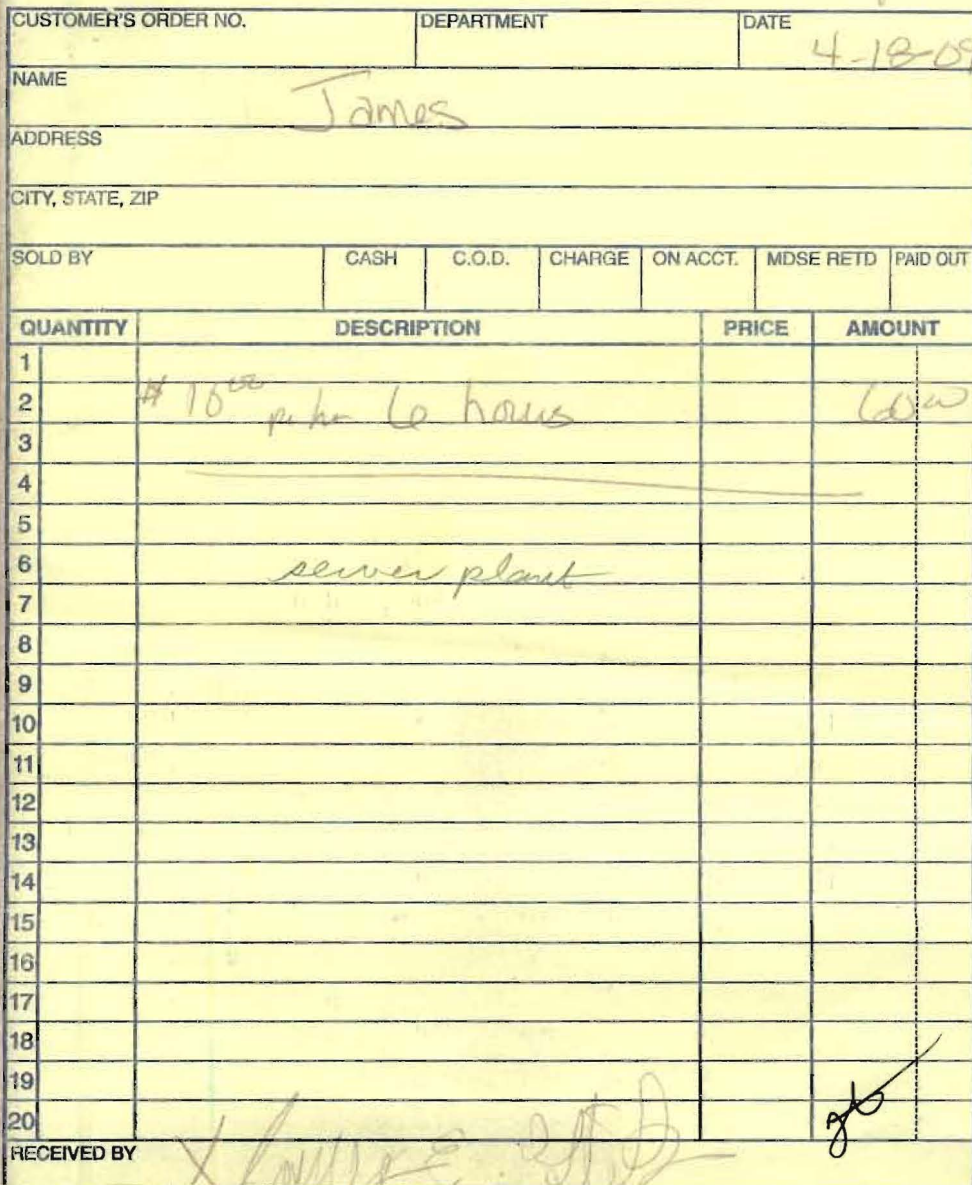 CUSTOMER'S ORDER NO. DEPARTMENT DATE
4-18-09
NAME James
ADDRESS
CITY, STATE, ZIP
SOLD BY CASH C.O.D. CHARGE ON ACCT. MDSE RETD PAID OUT
QUANTITY DESCRIPTION PRICE AMOUNT
1
2 $10.00 per hr 6 hours 60.00
3
4
5
6 sewer plant
7
8
9
10
11
12
13
14
15
16
17
18
19
20
RECEIVED BY X